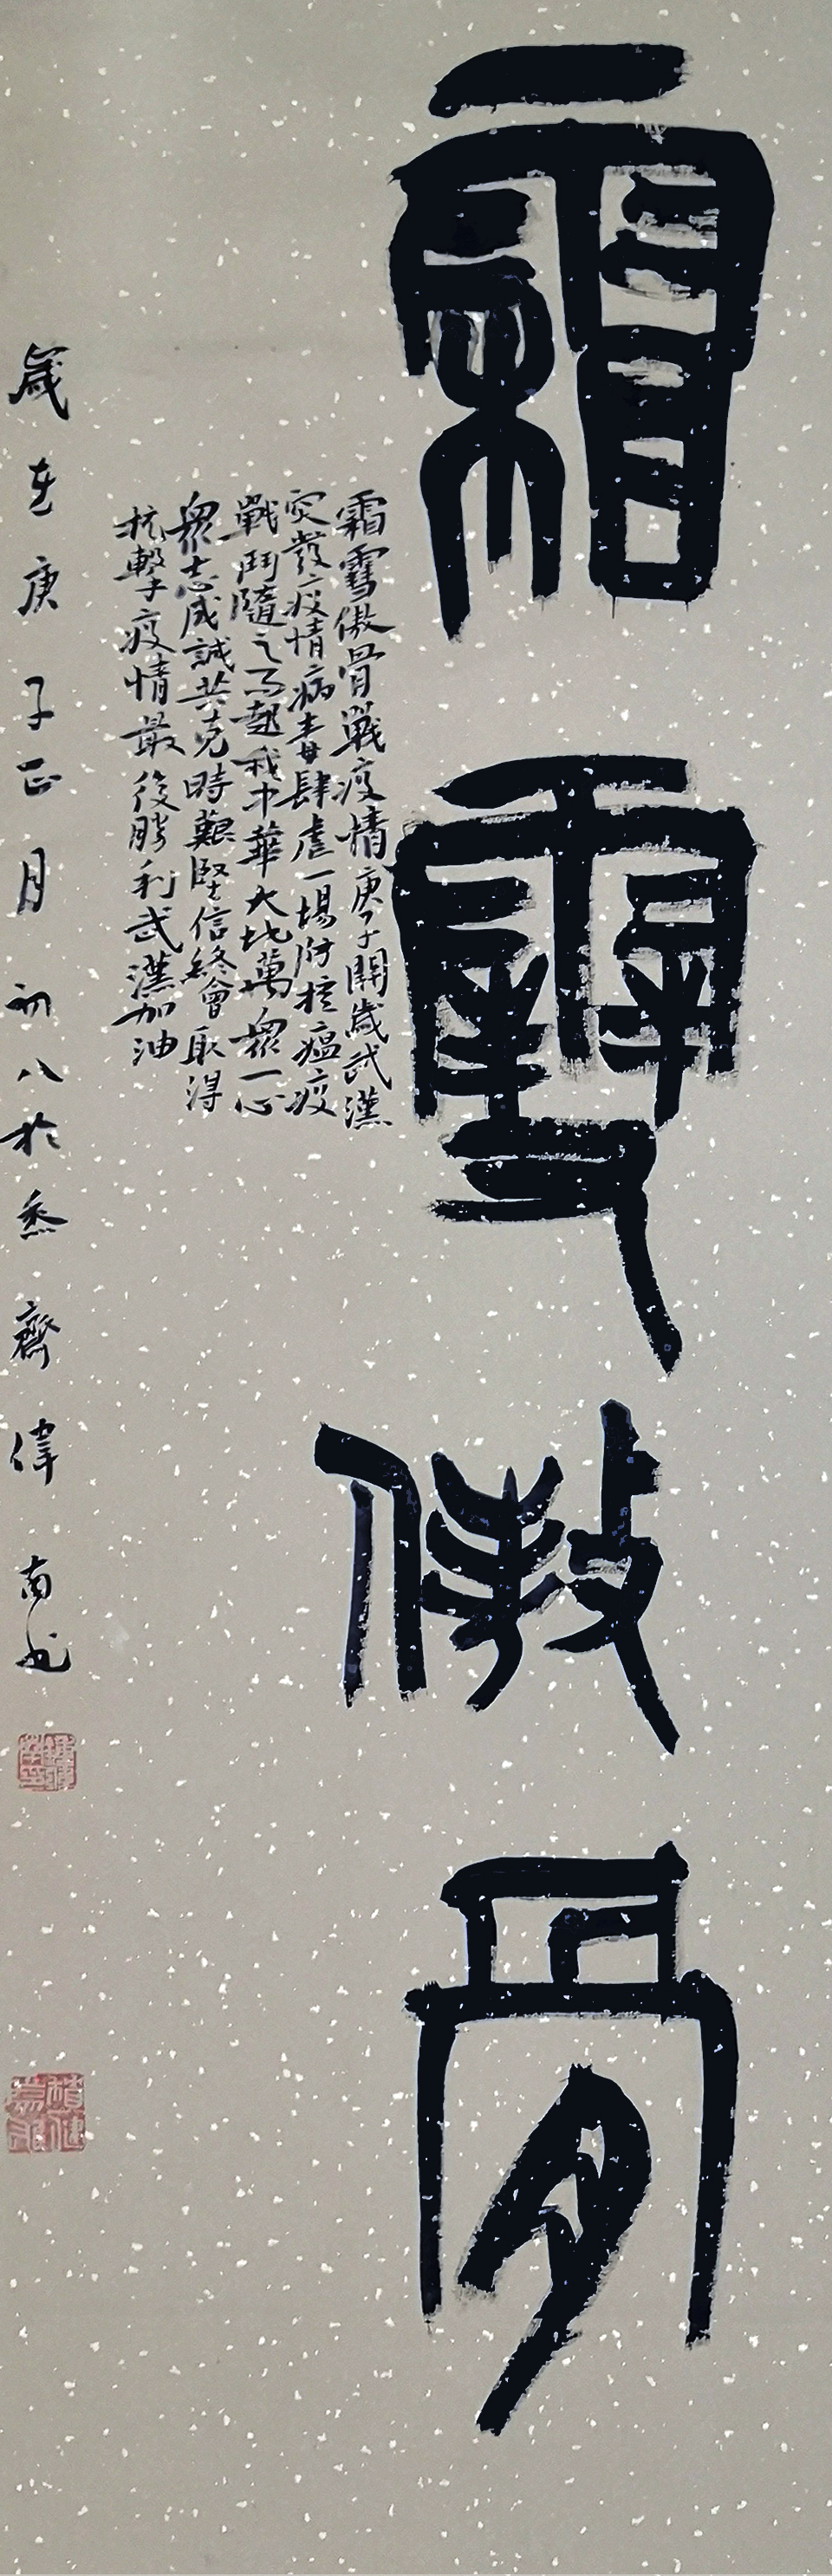 霜雪傲骨
霜雪傲骨戰疫情庚子開歲武漢
突發疫情病毒肆虐一場防控瘟疫
戰鬥隨之而起我中華大地萬眾一心
眾志成誠共克時艱堅信終會取得
抗擊疫情最後勝利武漢加油
歲在庚子正月初八於 齋偉南书